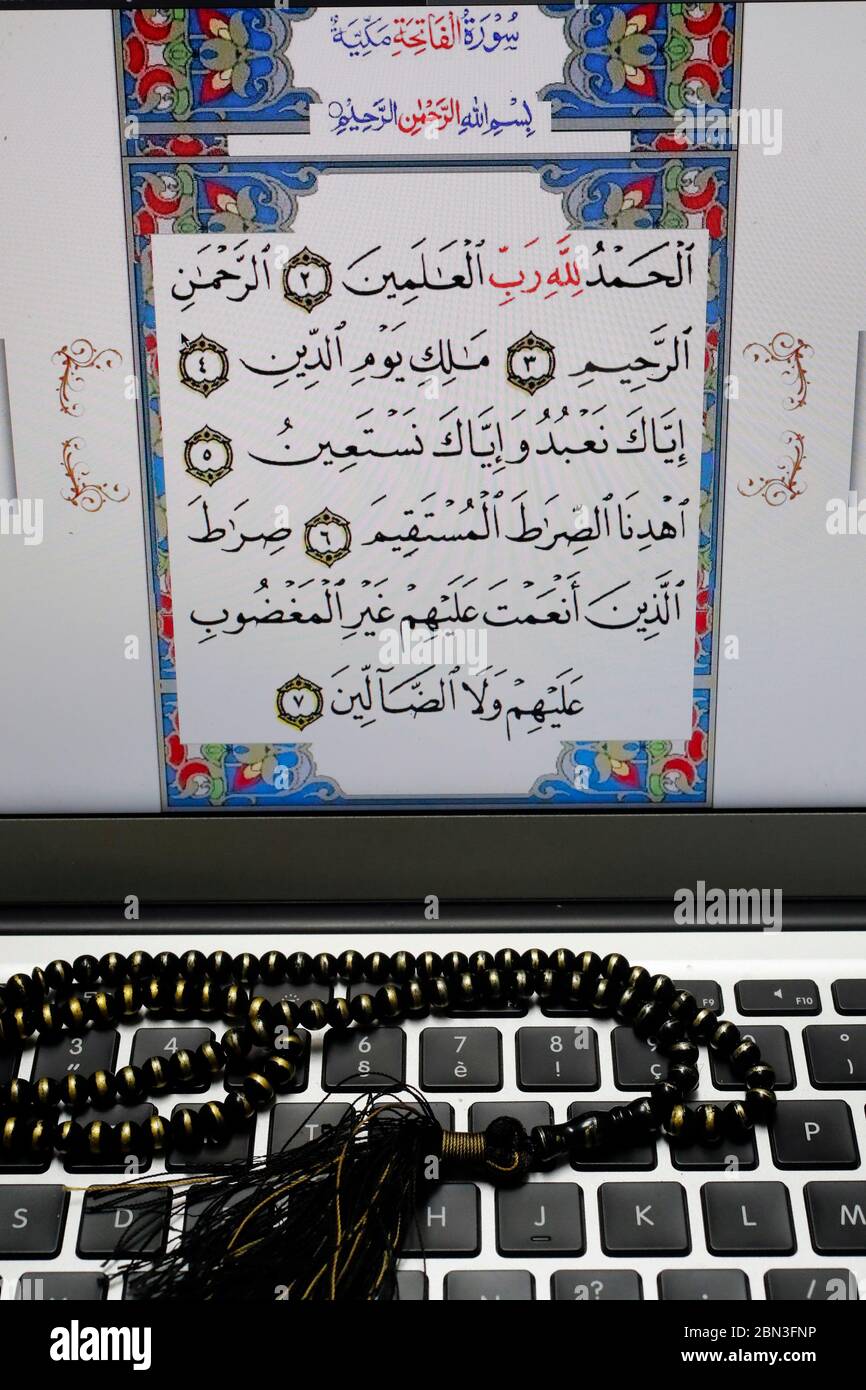 سُورَةُ الْفَاتِحَةِ مَكِّيَّةٌ
بِسْمِ اللهِ الرَّحْمٰنِ الرَّحِيْمِ
ٱلْحَمْدُ لِلَّهِ رَبِّ ٱلْعَـٰلَمِينَ ٢ ٱلرَّحْمَـٰنِ
ٱلرَّحِيمِ ٣ مَـٰلِكِ يَوْمِ ٱلدِّينِ ٤
إِيَّاكَ نَعْبُدُ وَإِيَّاكَ نَسْتَعِينُ ٥
ٱهْدِنَا ٱلصِّرَٰطَ ٱلْمُسْتَقِيمَ ٦ صِرَٰطَ
ٱلَّذِينَ أَنْعَمْتَ عَلَيْهِمْ غَيْرِ ٱلْمَغْضُوبِ
عَلَيْهِمْ وَلَا ٱلضَّآلِّينَ ٧
F9 F10
3 " 4 6 § 7 è 8 ! 9 ç °
T P
S D H J K L M
? /
alamy
Image ID: 2BN3FNP
www.alamy.com